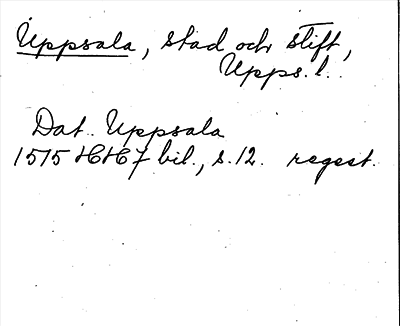 Uppsala, stad och stift,
Upps. l.
Dat. Uppsala
1515 HH 7 bil., s. 12. regest.